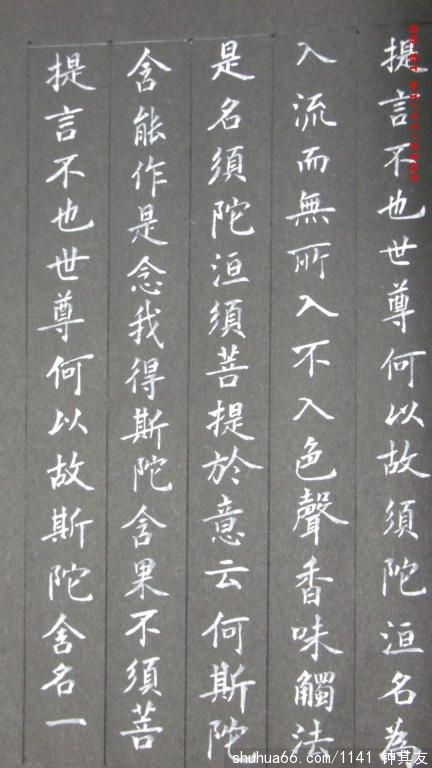 提言不也世尊何以故須陀洹名為
入流而無所入不入色聲香味觸法
是名須陀洹須菩提於意云何斯陀
含能作是念我得斯陀含果不須菩
提言不也世尊何以故斯陀含名一
shuhua66.com/1141 钟其友